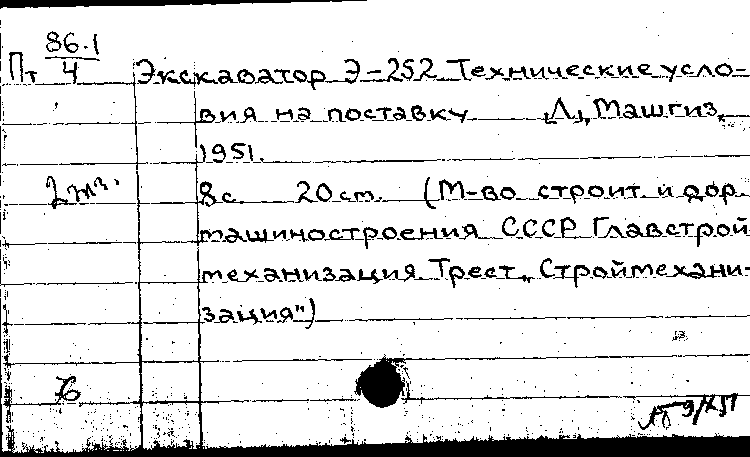 86.1
Пт 4 Экскаватор Э-252 Технические усло-
вия на поставку „Л„ Машгиз„
1951.
2 экз. 8с. 20 см. (М-во строит. и дор.
машиностроения СССР Главстрой
механизация Трест „Строймехани-
зация")